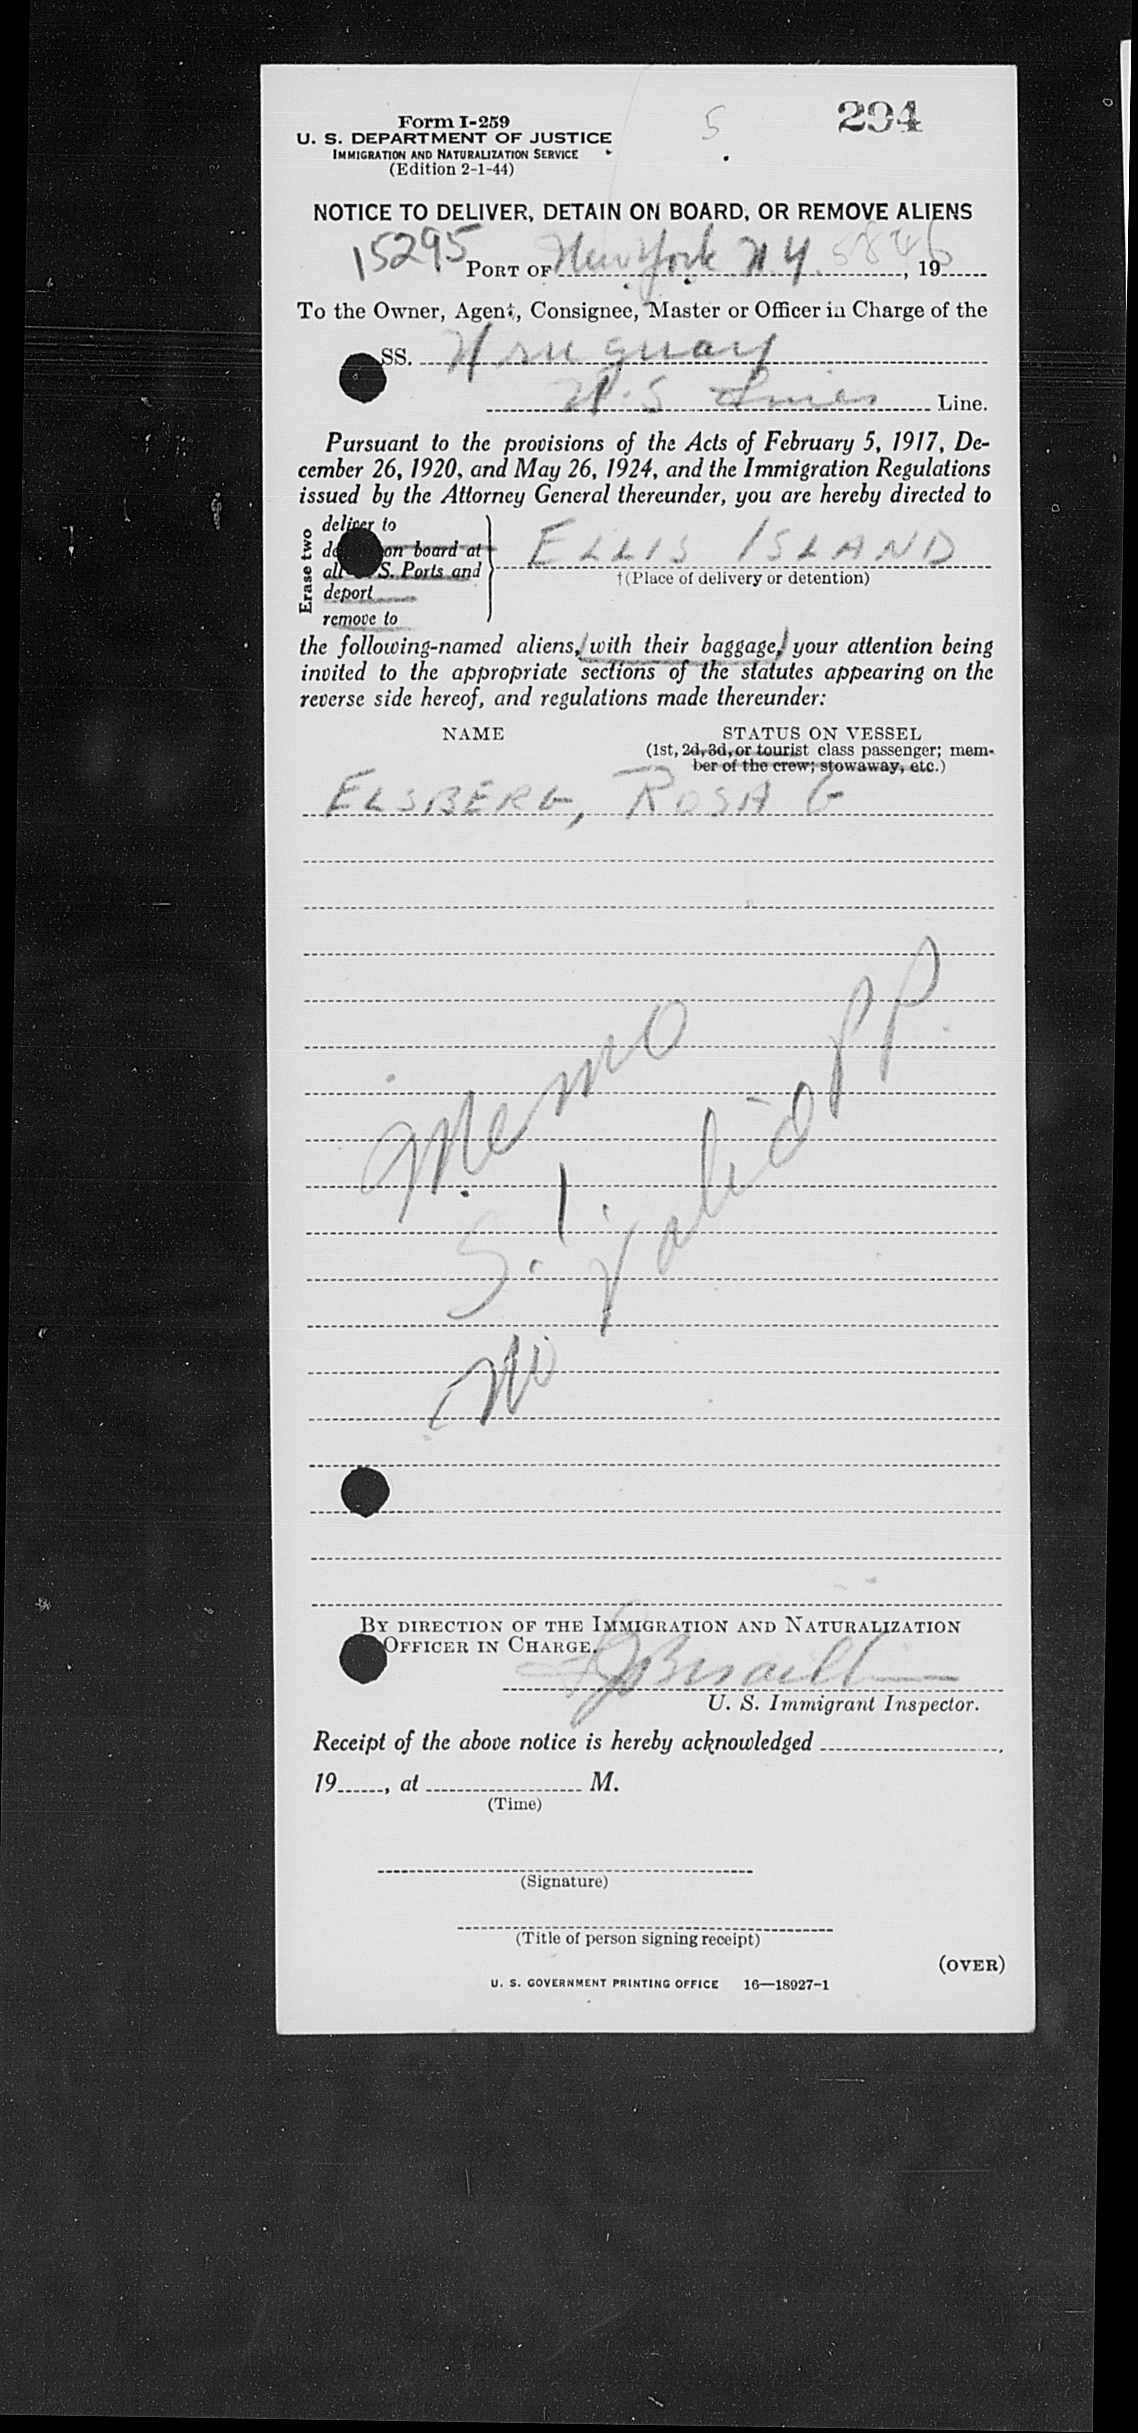 Form I-259
U. S. DEPARTMENT OF JUSTICE
IMMIGRATION AND NATURALIZATION SERVICE
(Edition 2-1-44)
5
294
NOTICE TO DELIVER, DETAIN ON BOARD, OR REMOVE ALIENS
15295
PORT OF New York N.Y. , 19
To the Owner, Agent, Consignee, Master or Officer in Charge of the
SS. Uruguay
U.S Lines Line.
Pursuant to the provisions of the Acts of February 5, 1917, De-
cember 26, 1920, and May 26, 1924, and the Immigration Regulations
issued by the Attorney General thereunder, you are hereby directed to
Erase two
deliver to
on board at
all S. Ports and
deport
remove to
ELLIS ISLAND
†(Place of delivery or detention)
the following-named aliens, with their baggage, your attention being
invited to the appropriate sections of the statutes appearing on the
reverse side hereof, and regulations made thereunder:
NAME
STATUS ON VESSEL
(1st, 2d, 3d, or tourist class passenger; mem-
ber of the crew; stowaway, etc.)
ELSBERG, ROSA G
Memo
S.I.
No valid PP.
BY DIRECTION OF THE IMMIGRATION AND NATURALIZATION
OFFICER IN CHARGE.
U. S. Immigrant Inspector.
Receipt of the above notice is hereby acknowledged ,
19 , at M.
(Time)
(Signature)
(Title of person signing receipt)
(OVER)
U. S. GOVERNMENT PRINTING OFFICE 16—18927-1